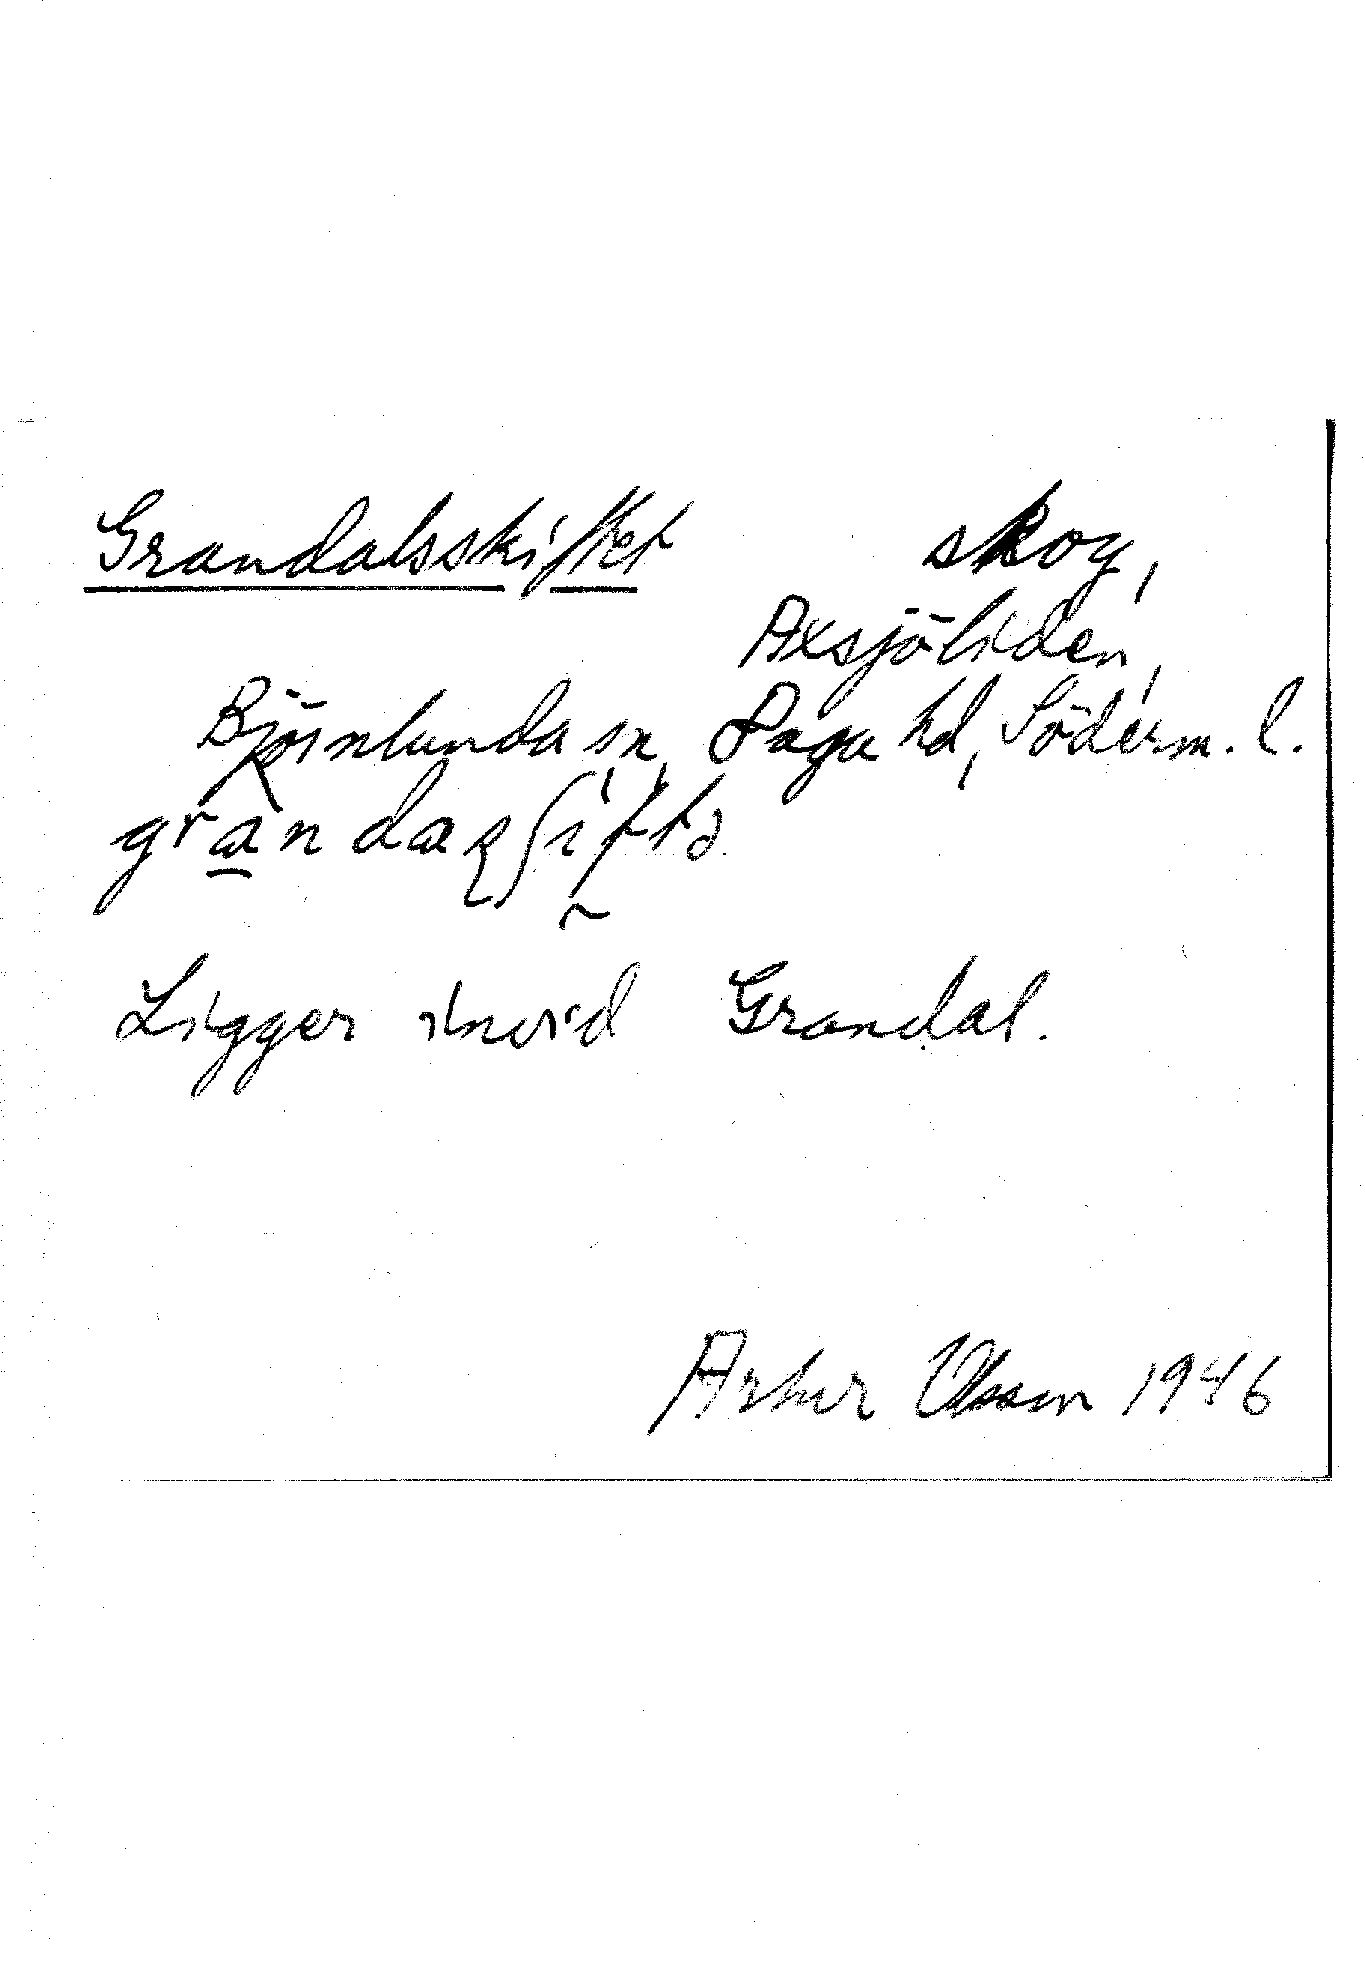 Grandalsskiftet skog,
Axsjöliden,
Björnlunda sn, Daga hd, Söderm. l.
Ligger inovid Grandal.
Artur Olsson 1946